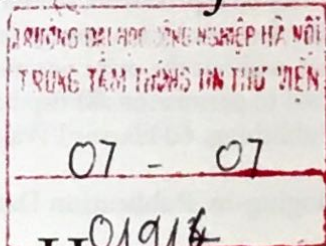 TRƯỜNG ĐẠI HỌC CÔNG NGHIỆP HÀ NỘI
TRUNG TÂM THÔNG TIN THƯ VIỆN
07 - 07